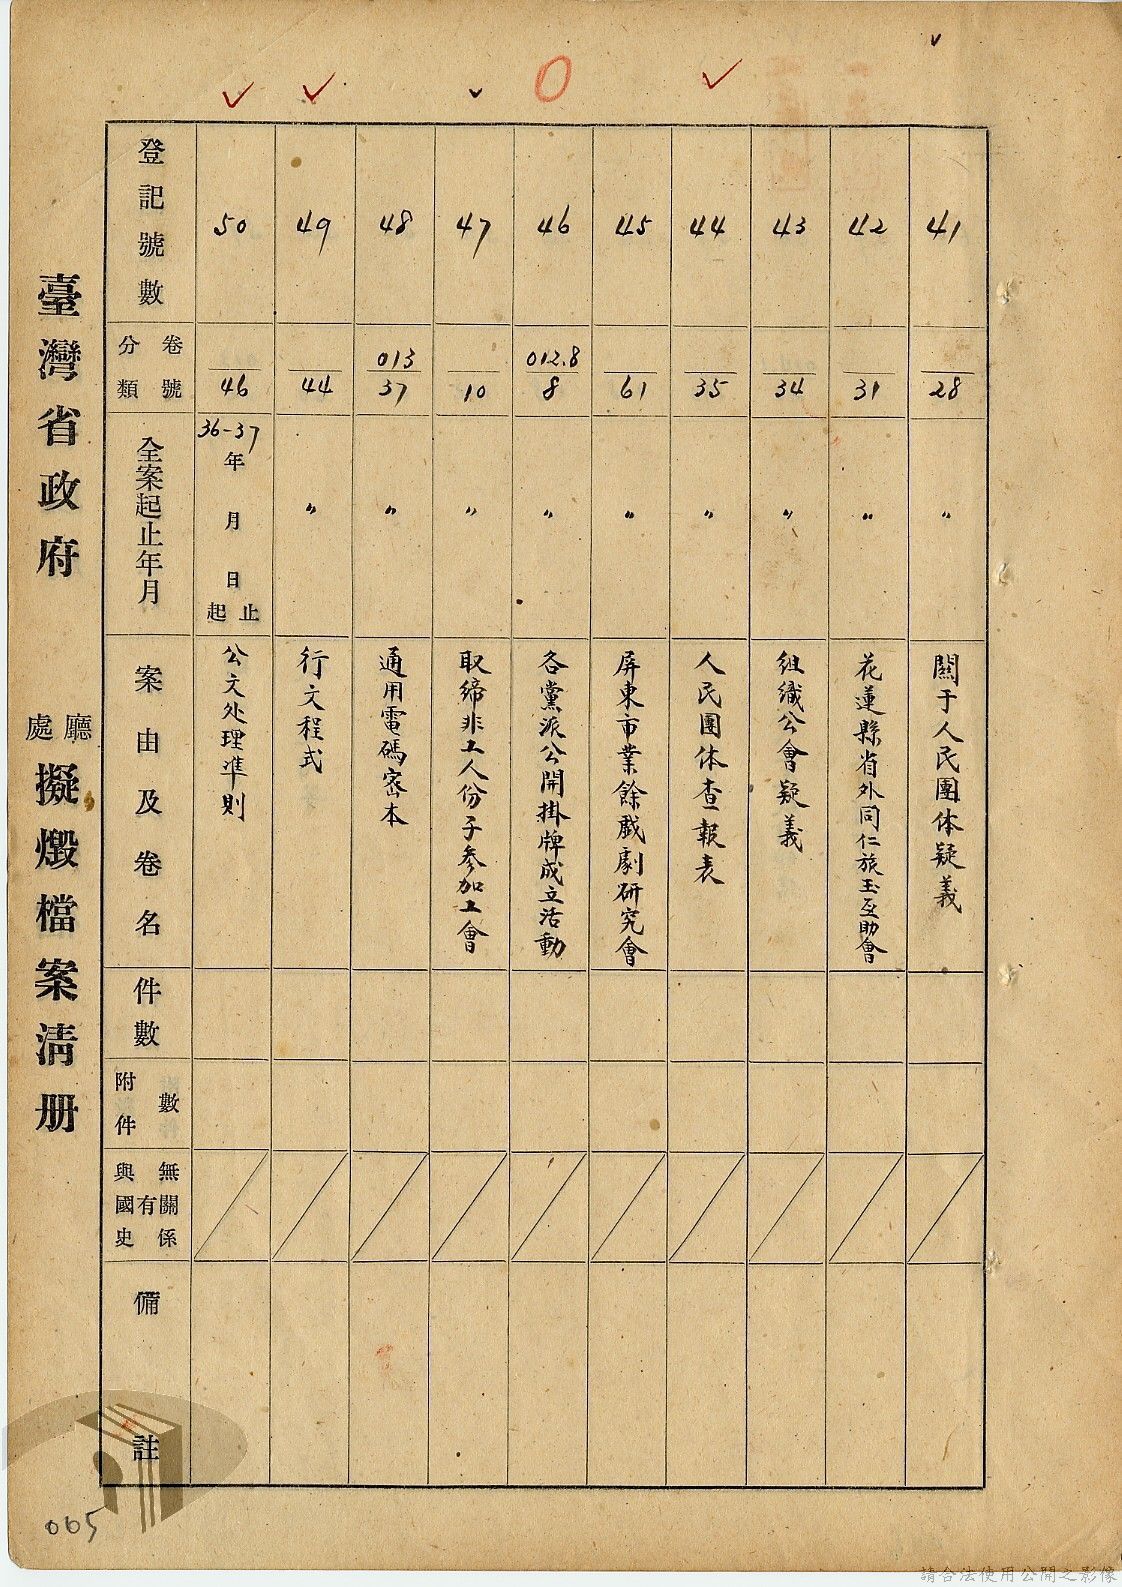 臺灣省政府 廳處 擬燬檔案清册
登記號數
卷號
分類
全案起止年月
案由及卷名
件數
附件數
與國史有無關係
備註
50
46
36-37
年 月 日 起止
公文处理準則
49
44
〃
行文程式
48
013
37
〃
通用電碼密本
47
10
〃
取締非工人份子參加工會
46
012.8
8
〃
各黨派公開掛牌成立活動
45
61
〃
屏東市業餘戲劇研究會
44
35
〃
人民團体查報表
43
34
〃
组織公會疑義
42
31
〃
花蓮縣省外同仁旅玉互助會
41
28
〃
關于人民團体疑義
065
請合法使用公開之影像